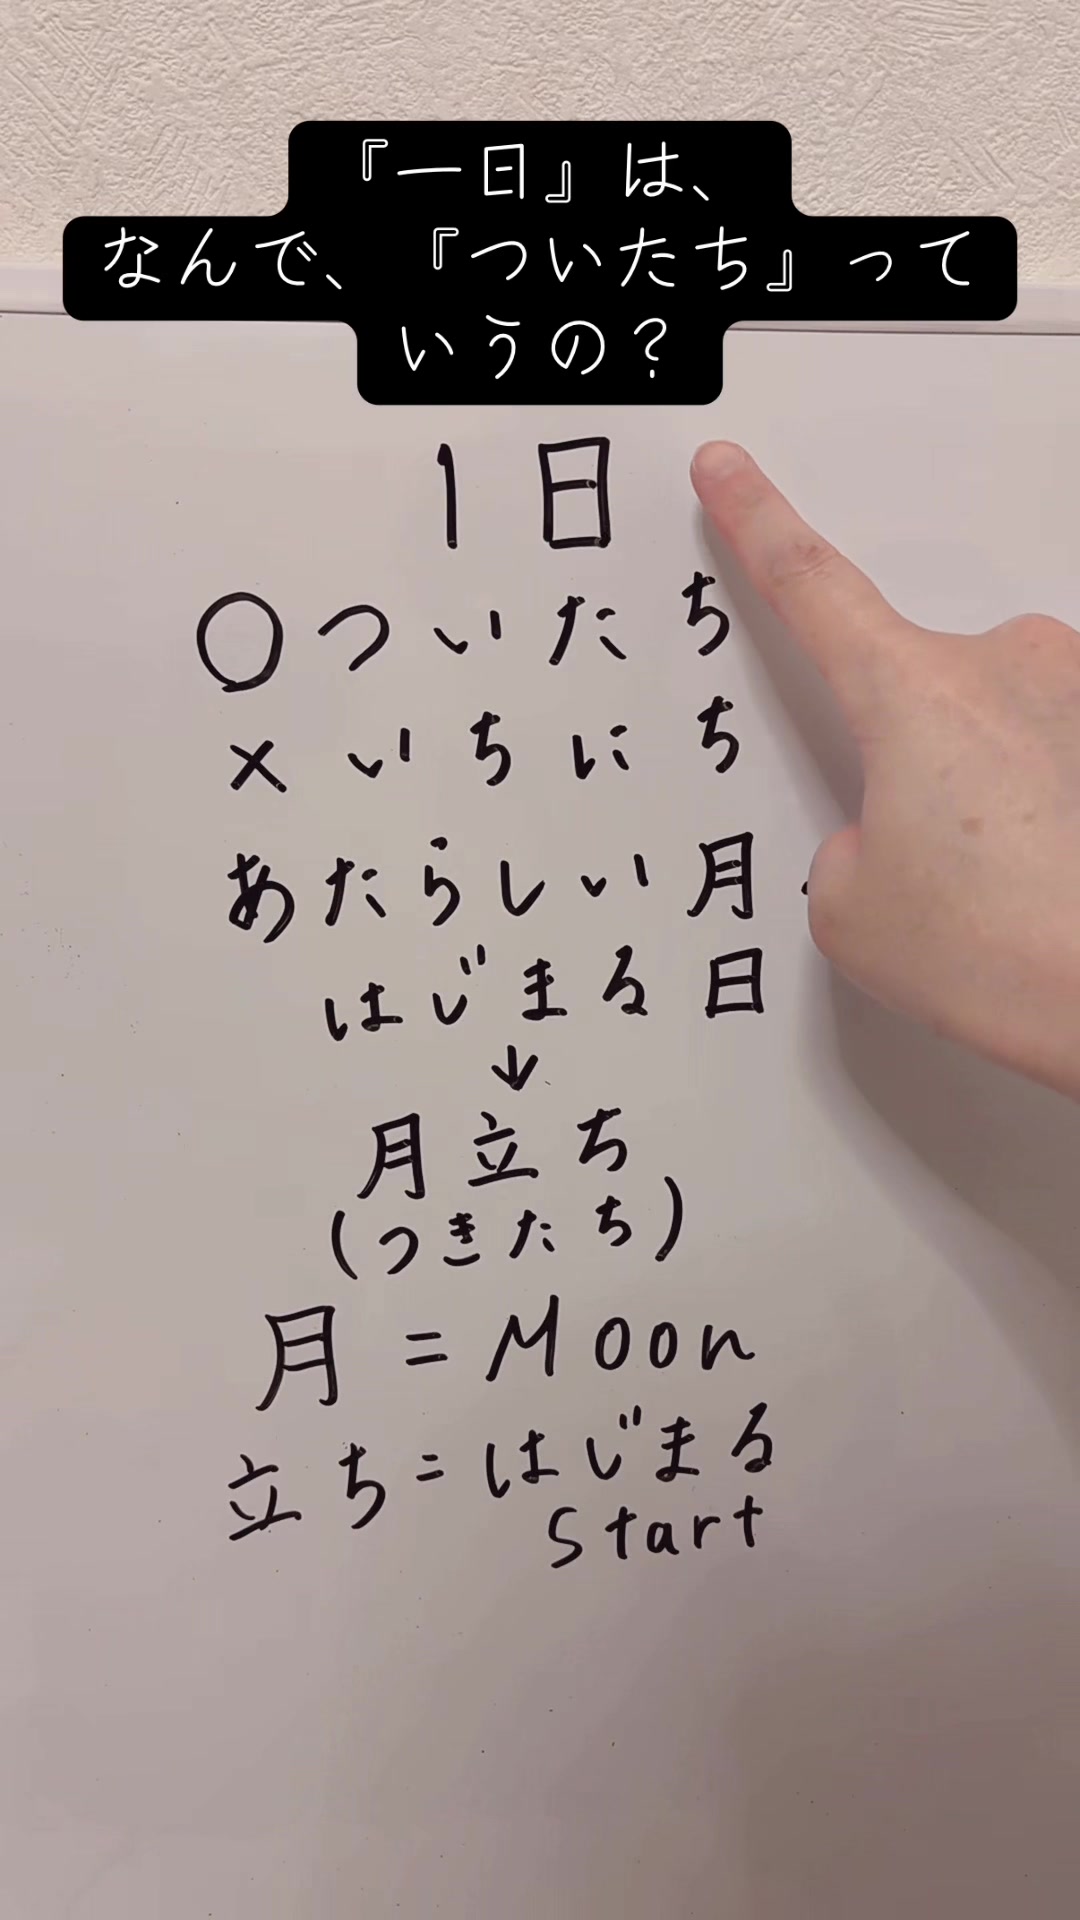 『一日』は、
なんで、『ついたち』って
いうの？
1日
○ついたち
×いちにち
あたらしい月
はじまる日
↓
月立ち
(つきたち)
月=Moon
立ち=はじまる
Start